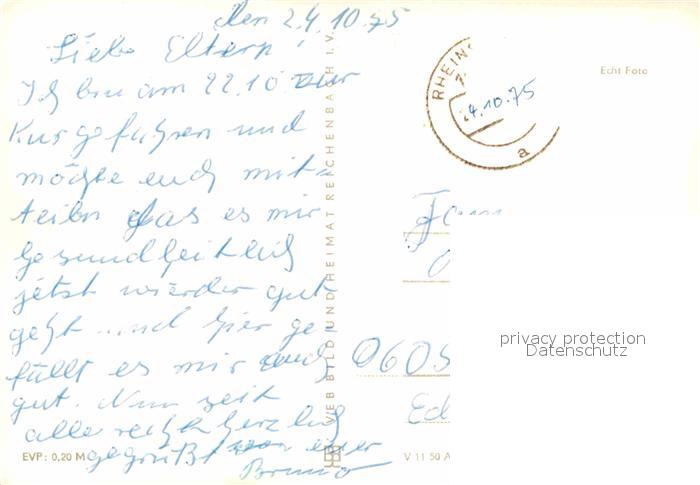 den 24.10.75
Liebe Eltern!
Ich bin am 22.10 zur
Kur gefahren und
möchte euch mit=
teilen das es mir
gesundheitlich
jetzt wieder gut
geht und hier ge=
fällt es mir auch
gut. Nun seit
alle recht herzlich
gegrüßt von euer
Bruno
EVP: 0,20 M
VEB BILD UND HEIMAT REICHENBACH I. V.
V 11 50 A
Echt Foto
RHEINS
4.10.75
a
Fam
0605
Ed
privacy protection
Datenschutz